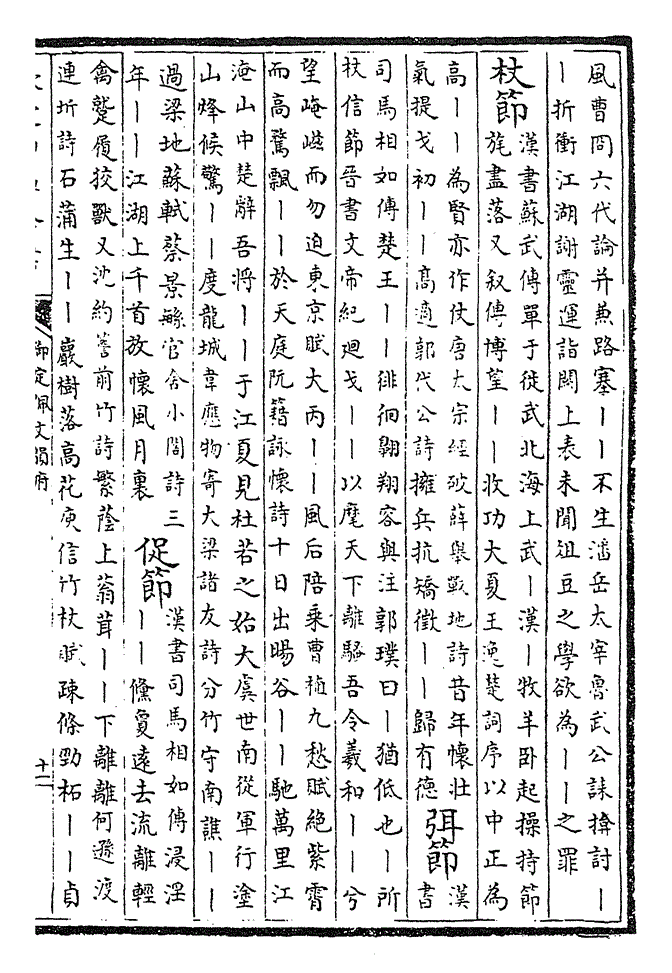 風曹冏六代論并兼路塞丨丨不生潘岳太宰魯武公誄揜討丨
丨折衝江湖謝靈運詣闕上表未聞俎豆之學欲為丨丨之罪
杖節
漢書蘇武傳單于徙武北海上武丨漢丨牧羊臥起操持節
旄盡落又叙傳博望丨丨收功大夏王逸楚詞序以中正為
高丨丨為賢亦作仗唐太宗經破薛舉戰地詩昔年懷壯
氣提戈初丨丨高適郭代公詩擁兵抗矯徵丨丨歸有德
弭節
漢
書
司馬相如傳楚王丨丨徘徊翺翔容與注郭璞曰丨猶低也丨所
杖信節晉書文帝紀廻戈丨丨以麾天下離騷吾令羲和丨丨兮
望崦嵫而勿迫東京賦大丙丨丨風后陪乘曹植九愁賦絕紫霄
而高騖飄丨丨於天庭阮籍詠懷詩十日出暘谷丨丨馳萬里江
淹山中楚辭吾將丨丨于江夏見杜若之始大虞世南從軍行塗
山烽候驚丨丨度龍城韋應物寄大梁諸友詩分竹守南譙丨丨
過梁地蘇軾蔡景繁官舍小閣詩三
年丨丨江湖上千首放懷風月裏
促節
漢書司馬相如傳浸淫
丨丨儵敻遠去流離輕
禽蹵履狡獸又沈約簷前竹詩繁蔭上蓊茸丨丨下離離何遜渡
連圻詩石蒲生丨丨巖樹落高花庾信竹杖賦疎條勁柘丨丨貞
御定佩文韻府
十二